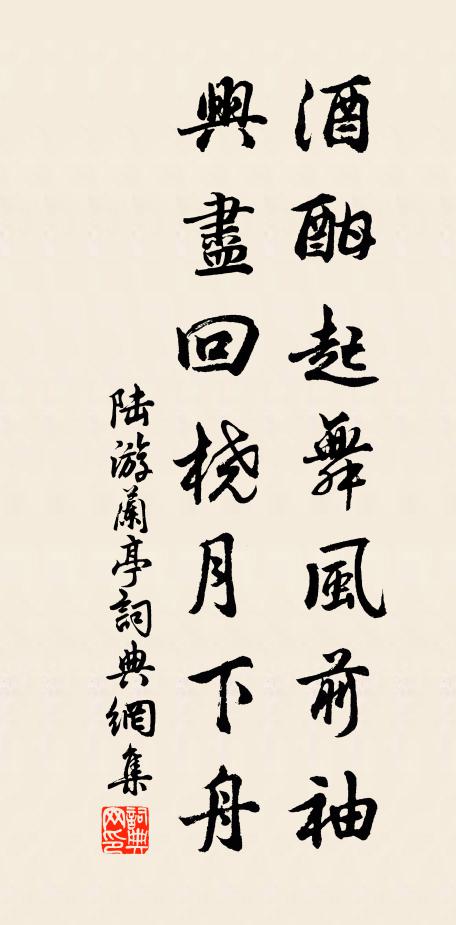 酒酣起舞風前袖
興盡回桡月下舟
陆游蘭亭詞典網集
詞典网印